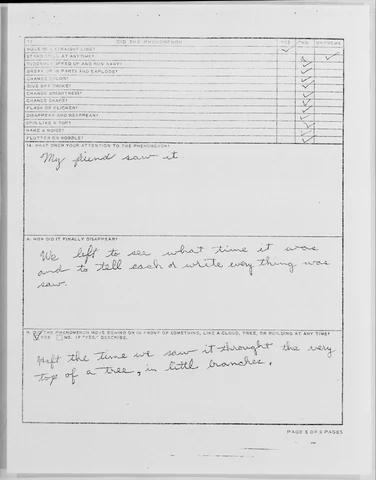 DID THE PHENOMENON
YES
UNKNOWN
MOVE IN A STRAIGHT LINE?
STAND STILL AT ANYTIME?
SUDDENLY SPEED UP AND RUN AWAY?
BREAK UP IN PARTS AND EXPLODE?
CHANGE COLOR?
GIVE OFF SMOKE?
CHANGE BRIGHTNESS?
CHANGE SHAPE?
FLASH OR FLICKER?
DISAPPEAR AND REAPPEAR?
SPIN LIKE A TOP?
MAKE A NOISE?
FLUTTER OR WOBBLE?
WHAT DREW YOUR ATTENTION TO THE PHENOMENON?
My friend saw it
A. HOW DID IT FINALLY DISAPPEAR?
We left to see what time it was
and to tell each or write every thing was
saw.
DID THE PHENOMENON MOVE BEHIND OR IN FRONT OF SOMETHING, LIKE A CLOUD, TREE, OR BUILDING AT ANY TIME?
YES NO. IF "YES," DESCRIBE.
Haft the time we saw it throught the very
top of a tree, in little branches.
PAGE 5 OF 9 PAGES